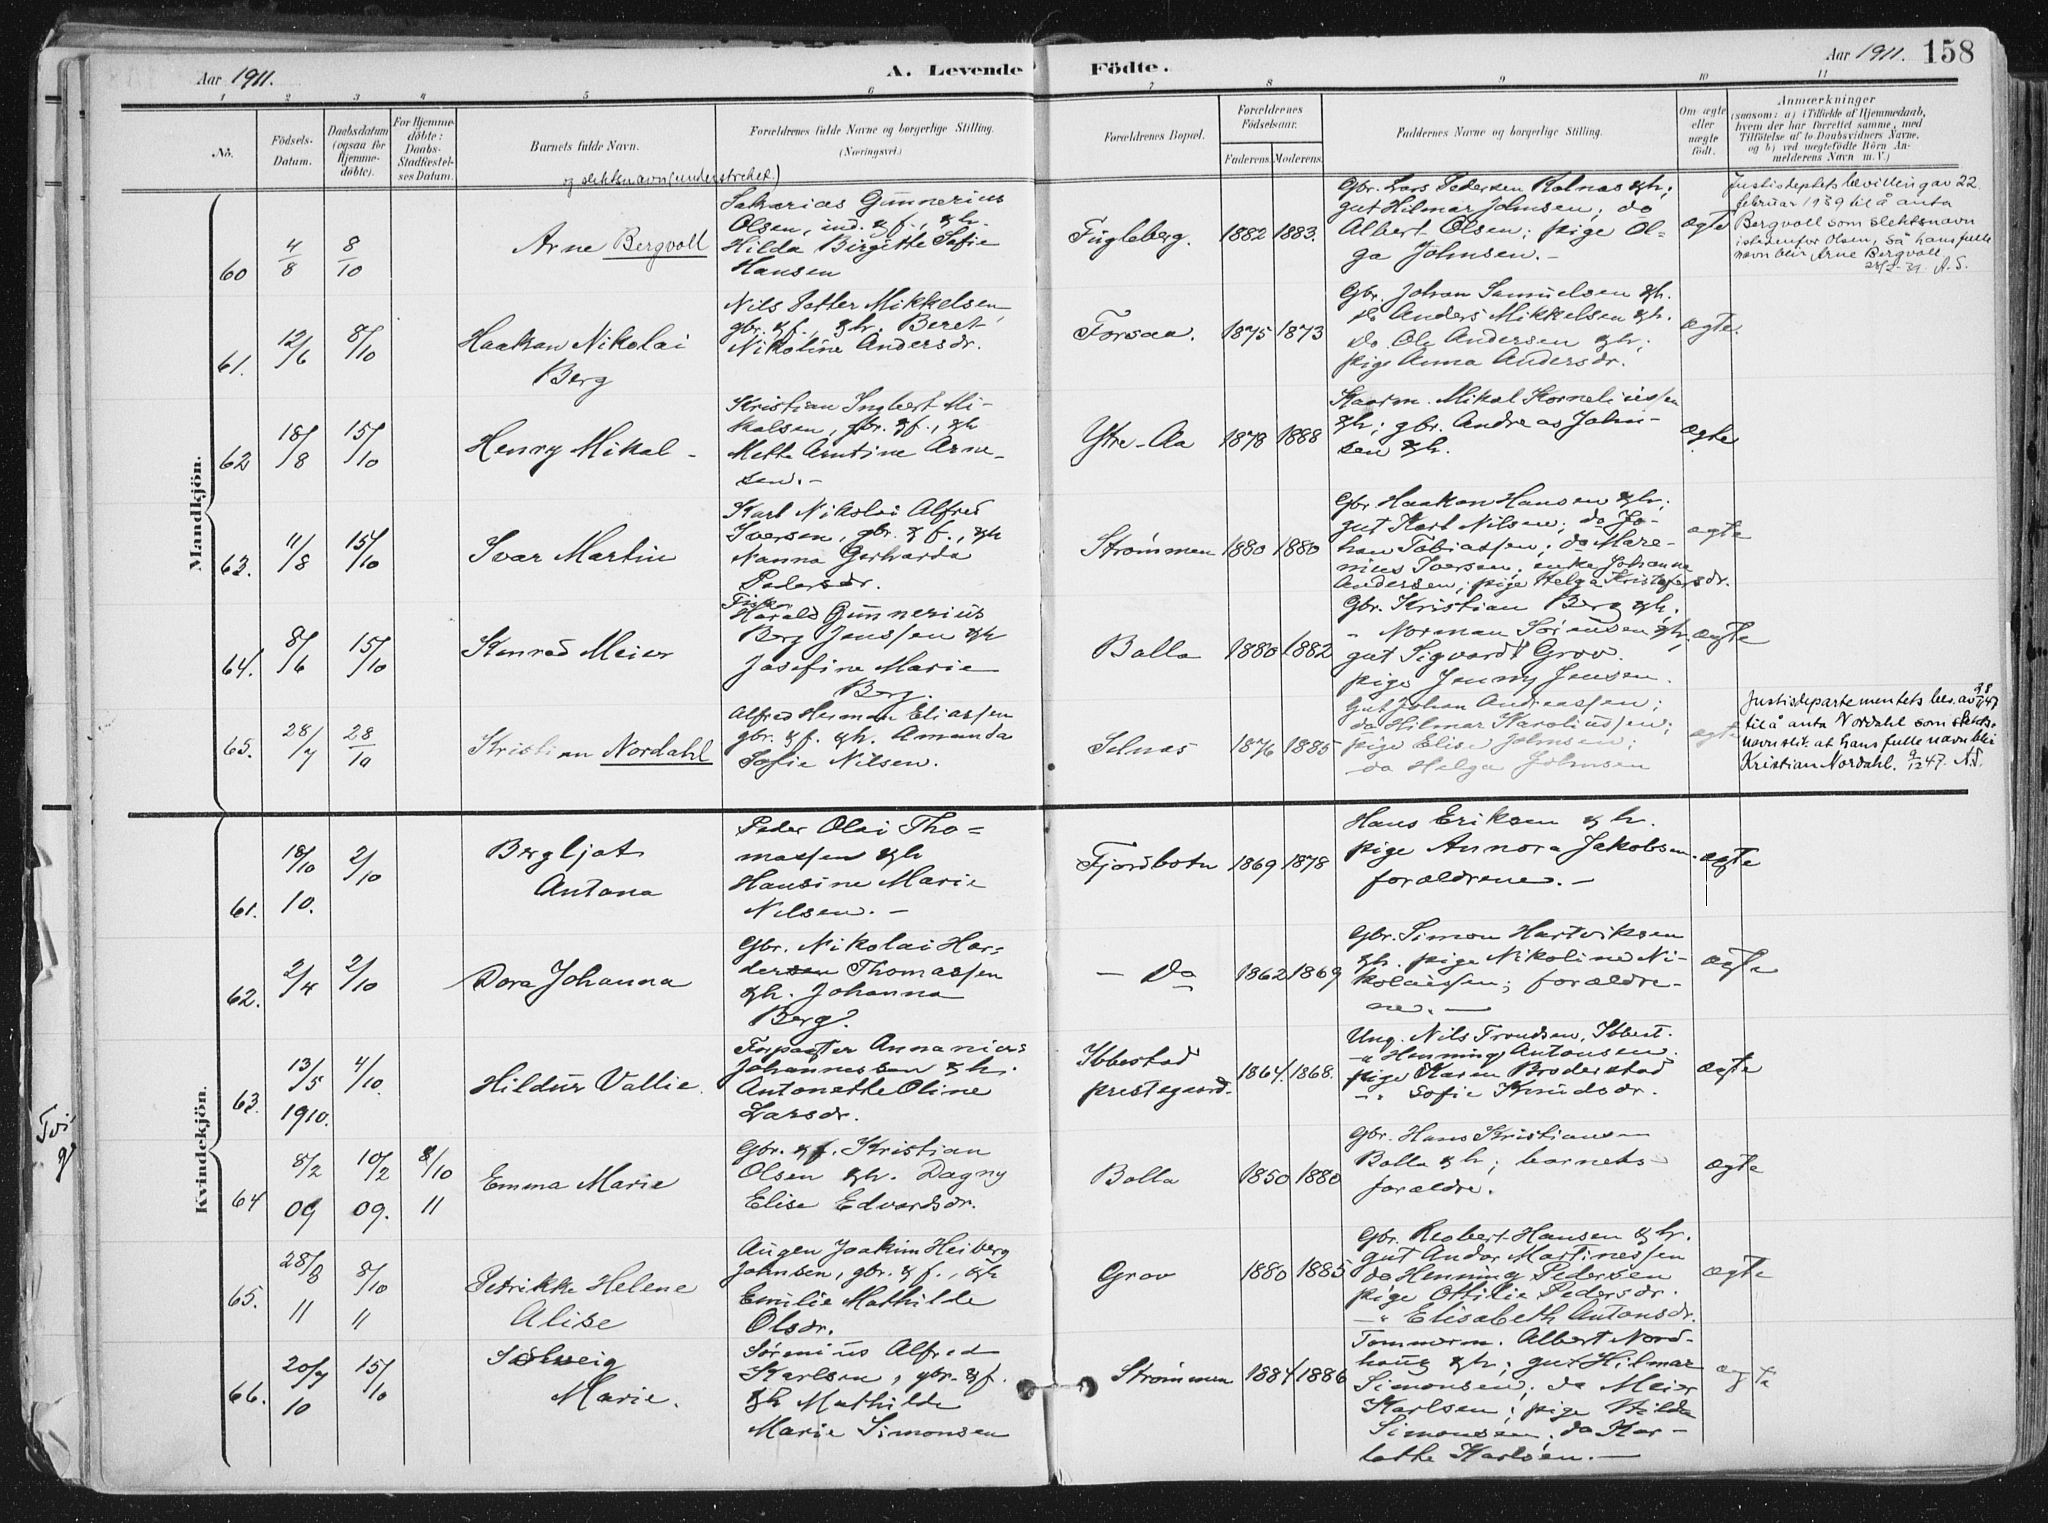 Aar 1911.
A. Levende Födte.
Aar 1911. 158
1 2 3 4 5 6 7 8 9 10 11
No.
Födsels-
Datum.
Daabsdatum
(ogsaa for
Hjemme-
döbte).
For Hjemme-
döbte:
Daabs-
Stadfæstel-
ses Datum.
Barnets fulde Navn.
og slektsnavn (understreket)
Forældrenes fulde Navne og borgerlige Stilling.
(Næringsvei.)
Forældrenes Bopæl.
Forældrenes
Födselsaar.
Faderens. Moderens.
Faddernes Navne og borgerlige Stilling.
Om ægte
eller
uægte
födt.
Anmærkninger
(saasom: a) i Tilfælde af Hjemmedaab,
hvem der har forrettet samme, med
Tilföielse af to Daabsvidners Navne,
og b) ved uægtefödte Börn An-
melderens Navn m. V.)
Mandkjön.
60 4/8 8/10
Arne Bergvoll
Sakarias Gunnerius
Olsen, ind. & f., & h.
Hilda Birgitte Sofie
Hansen
Fugleberg. 1882 1883.
Gbr. Lars Pedersen Kolnas & h;
gut Hilmar Johnsen; do
Albert Olsen; pige Ol-
ga Johnsen.-
ægte
Justisdeptets bevilling av 22
februar 1939 til å anta
Bergvoll som slektsnavn
istedenfor Olsen, så hans fulle
navn blir Arne Bergvoll.
28/2-39. A.S.
61. 12/6 8/10
Haakon Nikolai
Berg
Nils Petter Mikkelsen
gbr. & f., & h. Beret
Nikoline Andersdr.
Forsaa. 1875 1873
Gbr. Johan Samuelsen & h.
do Anders Mikkelsen & h.
do. Ole Andersen & h;
pige Anna Andersdr.
ægte.
62 18/8 15/10
Henry Mikal -
Kristian Ingbert Mi-
kalsen, gbr. & f., & h
Mette Arntine Arne-
sen.-
Ytre-Aa 1878 1888
Kaarm. Mikal Korneliussen
& h; gbr. Andreas John-
sen & h.
ægte
63. 11/8 15/10
Ivar Martin
Karl Nikolai Alfred
Iversen, gbr. & f., & h
Nanna Gerharda
Pedersdr.
Strømmen 1880 1880
Gbr Haakon Hansen & h;
gut Karl Nilsen; do Jo-
han Tobiassen; do Mare-
nius Iversen; enke Johanna
Andersen; pige Helga Kristofersdr.
ægte
64. 8/6 15/10
Konrad Meier
Fisker
Harald Gunnerius
Berg Jenssen & h
Josefine Marie
Berg.
Bolla 1880 1882
Gbr. Kristian Berg & h.
" Norman Sørensen & h,
gut Sigvardt Grov.
pige Jenny Jensen.
ægte
65. 28/7 28/10
Kristian Nordahl
Alfred Herman Eliassen
gbr. & f. & h. Amanda
Sofie Nilsen.
Selnæs 1876 1885
Gut Johan Andreassen;
do Hilmar Karoliussen;
pige Elise Johnsen;
do Helga Johnsen
ægte
Justisdepartementets bev. av
til å anta Nordahl som slekts-
navn slik at hans fulle navn blir
Kristian Nordahl. 9/12 47. A.S.
Kvindekjön.
61. 18/10 10. 2/10
Bergljot
Antona
Peder Olai Tho-
massen & h
Hansine Marie
Nilsen. -
Fjordbotn 1869 1878
Hans Eriksen & h.
pige Annora Jakobsen.
forældrene. -
ægte
62. 2/4 2/10
Dora Johanna
Gbr. Nikolai Hor-
dersen Thomassen
& h. Johanna
Berg.
- Do 1862 1869
Gbr. Simon Hartviksen
& h. pige Nikoline Ni-
kolaissen; forældre-
ne. -
ægte
63. 13/5 1910. 4/10.
Hildur Vallie.
Forpagter Annanias
Johannessen & h.
Antonette Oline
Larsdr.
Ibbestad
prestegaard. 1864. 1868.
Ung. Nils Trondsen, Ibbest.
" Henning Antonsen.
pige Karen Broderstad
- " Sofie Knudsdr.
ægte
64 8/2 09 10/2 09. 8/10 11
Emma Marie
Gbr. & f. Kristian
Olsen & h. Dagny
Elise Edvardsdr.
Bolla 1850 1880
Gbr. Hans Kristiansen
Bolla & h; barnets
forældre.
ægte
65. 28/8 11 8/10 11
Petrikke Helene
Alise
Augen Joakim Heiberg
Johnsen, gbr. & f., & h
Emilie Mathilde
Olsdr.
Grov 1880 1885
Gbr. Reobert Hansen & h.
gut Andor Martinessen
do Henning Pedersen
pige Ottilie Pedersdr.
- " Elisabeth Antonsdr.
ægte
66. 20/7 10 15/10
Solveig
Marie.
Sørenius Alfred
Karlsen, gbr. & f.
& h Mathilde
Marie Simonsen
Strømmen 1884 1886
Tømmerm. Albert Nord-
haug & h; gut Hilmar
Simonsen; do Meier
Karlsen; pige Hilda
Simonsen; do Kar-
lotte Karlsen. -
ægte